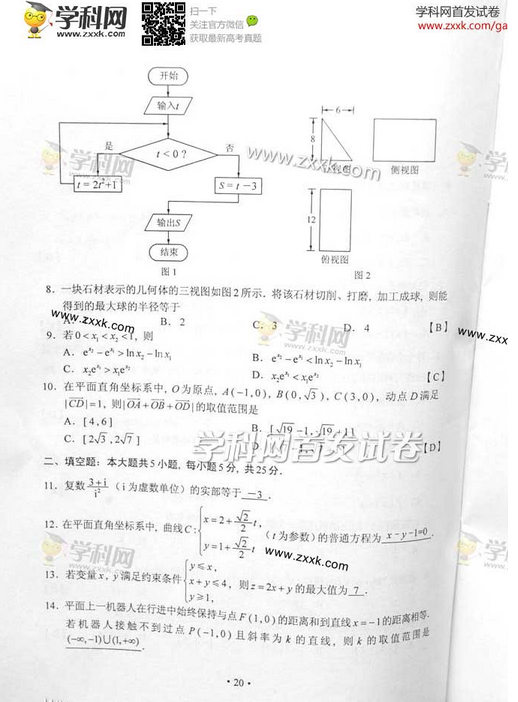 学科网
www.zxxk.com
扫一下
关注官方微信
获取最新高考真题
学科网首发试卷
www.zxxk.com/ga
开始
输入t
是
t < 0 ?
否
t = 2t²+1
S = t −3
输出S
结束
图 1
6
8
侧视图
12
俯视图
图 2
www.zxxk.com
学科网
8. 一块石材表示的几何体的三视图如图2所示. 将该石材切削、打磨, 加工成球, 则能
得到的最大球的半径等于
B. 2
C. 3
D. 4
【B】
www.zxxk.com
学科网
www.zxxk.com
9. 若 0 < x₁ < x₂ < 1, 则
A. e^{x₂} − e^{x₁} > ln x₂ − ln x₁
B. e^{x₂} − e^{x₁} < ln x₂ − ln x₁
C. x₂e^{x₁} > x₁e^{x₂}
D. x₂e^{x₁} < x₁e^{x₂}
【C】
10. 在平面直角坐标系中, O为原点, A(−1,0), B(0,√3), C(3,0), 动点D满足
|CD|=1, 则|OA+OB+OD|的取值范围是
A. [4,6]
B. [√19−1,√19+1]
C. [2√3,2√7]
【D】
学科网首发试卷
二、填空题：本大题共5小题, 每小题5分, 共25分.
11. 复数 (3+i)/i² (i为虚数单位) 的实部等于 −3 .
12. 在平面直角坐标系中, 曲线C: { x=2+(√2/2)t, y=1+(√2/2)t (t为参数) 的普通方程为 x−y−1=0 .
学科网
zxxk.com
13. 若变量x, y满足约束条件 { y≤x, x+y≤4, y≥1, 则z=2x+y的最大值为 7 .
14. 平面上一机器人在行进中始终保持与点F(1,0)的距离和到直线x=−1的距离相等.
若机器人接触不到过点P(−1,0)且斜率为k的直线, 则k的取值范围是
(−∞,−1)∪(1,+∞) .
· 20 ·